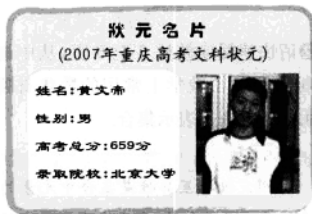 状元名片
(2007年重庆高考文科状元)
姓名:黄文帝
性别:男
高考总分:659分
录取院校:北京大学